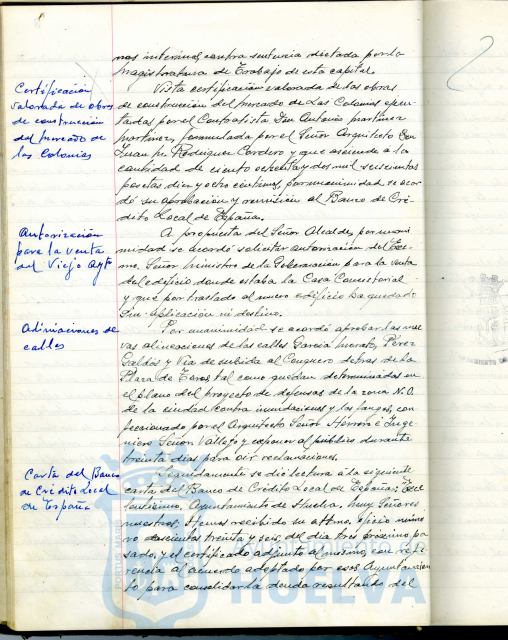 nos interinos contra sentencia dictada por la
Magistratura de Trabajo de esta capital.
Certificación
valorada de obras
de construcción
del mercado de
las Colonias
Vista certificación valorada de las obras
de construcción del mercado de Las Colonias ejecu-
tadas por el Contratista Don Antonio Martínez
Martínez, formulada por el Señor Arquitecto Don
Juan M. Rodríguez Cordero y que asciende a la
cantidad de ciento ochenta y dos mil seiscientas
pesetas diez y ocho céntimos, por unanimidad se acor-
dó su aprobación y remisión al Banco de Cré-
dito Local de España.
Autorización
para la venta
del Viejo Aytº
A propuesta del Señor Alcalde, por unani-
midad se acordó solicitar autorización del Exc-
mo. Señor Ministro de la Gobernación para la venta
del edificio donde estaba la Casa Consistorial
y que por traslado al nuevo edificio ha quedado
sin aplicación ni destino.
Aliniaciones de
calles
Por unanimidad se acordó aprobar las nue-
vas alineaciones de las calles García Morato, Pérez
Galdós y Vía de subida al Conquero detras de la
Plaza de Toros, tal como quedan determinadas en
el plano del proyecto de defensas de la zona N.O.
de la ciudad contra inundaciones y los fangos, con-
feccionado por el Arquitecto Señor Herrero e Inge-
niero Señor Vallejo y exponer al público durante
treinta días para oir reclamaciones.
Carta del Banco
de Crédito Local
de España
Seguidamente se dio lectura a la siguiente
carta del Banco de Crédito Local de España: "Exce-
lentísimo Ayuntamiento de Huelva. Muy Señores
nuestros: Hemos recibido su attmo. oficio núme-
ro doscientos treinta y seis, del día tres próximo pa-
sado, y el certificado adjunto al mismo, con refe-
rencia al acuerdo adoptado por esos Ayuntamien-
to para consolidar la deuda resultante del
HUELVA